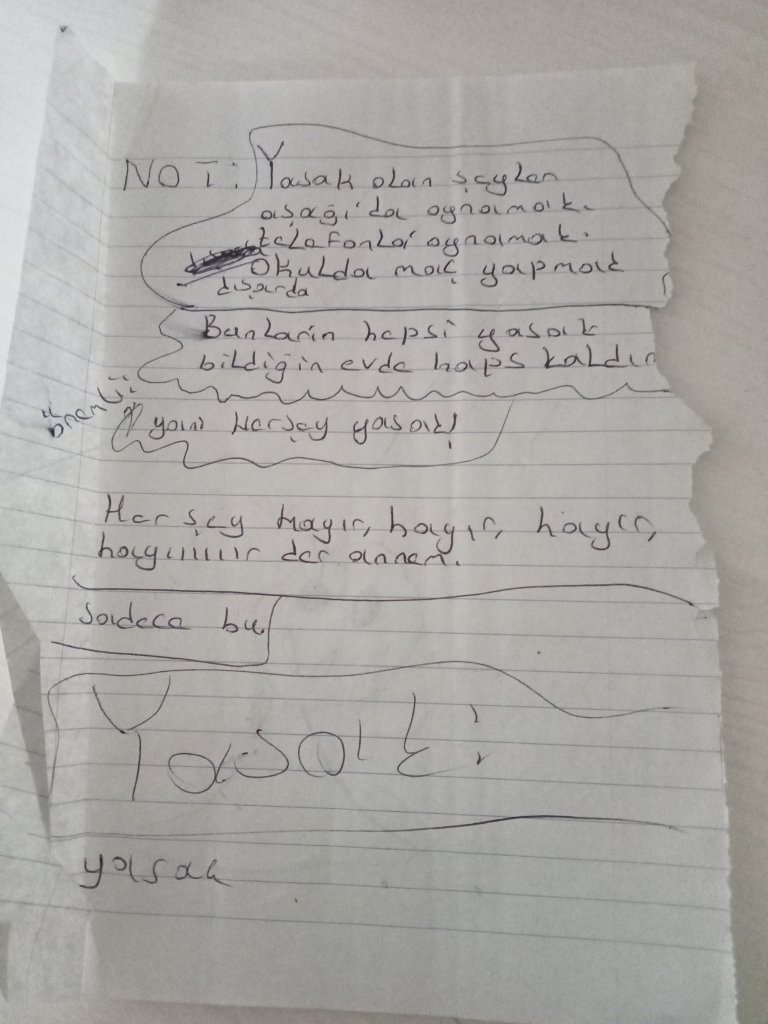 NOT: Yasak olan şeyler
aşağı'da oynamak.
telefonla oynamak.
Okulda maç yapmak
dışarda
Bunların hepsi yasak
bildiğin evde haps kaldın
önemli:
yani Herşey yasak!
Her şey hayır, hayır, hayır,
hayıııııır der annem.
Sadece bu
Yasak:
yasak